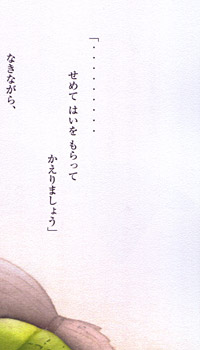 「・・・・・・・・
せめて はいを もらって
かえりましょう」
なきながら、